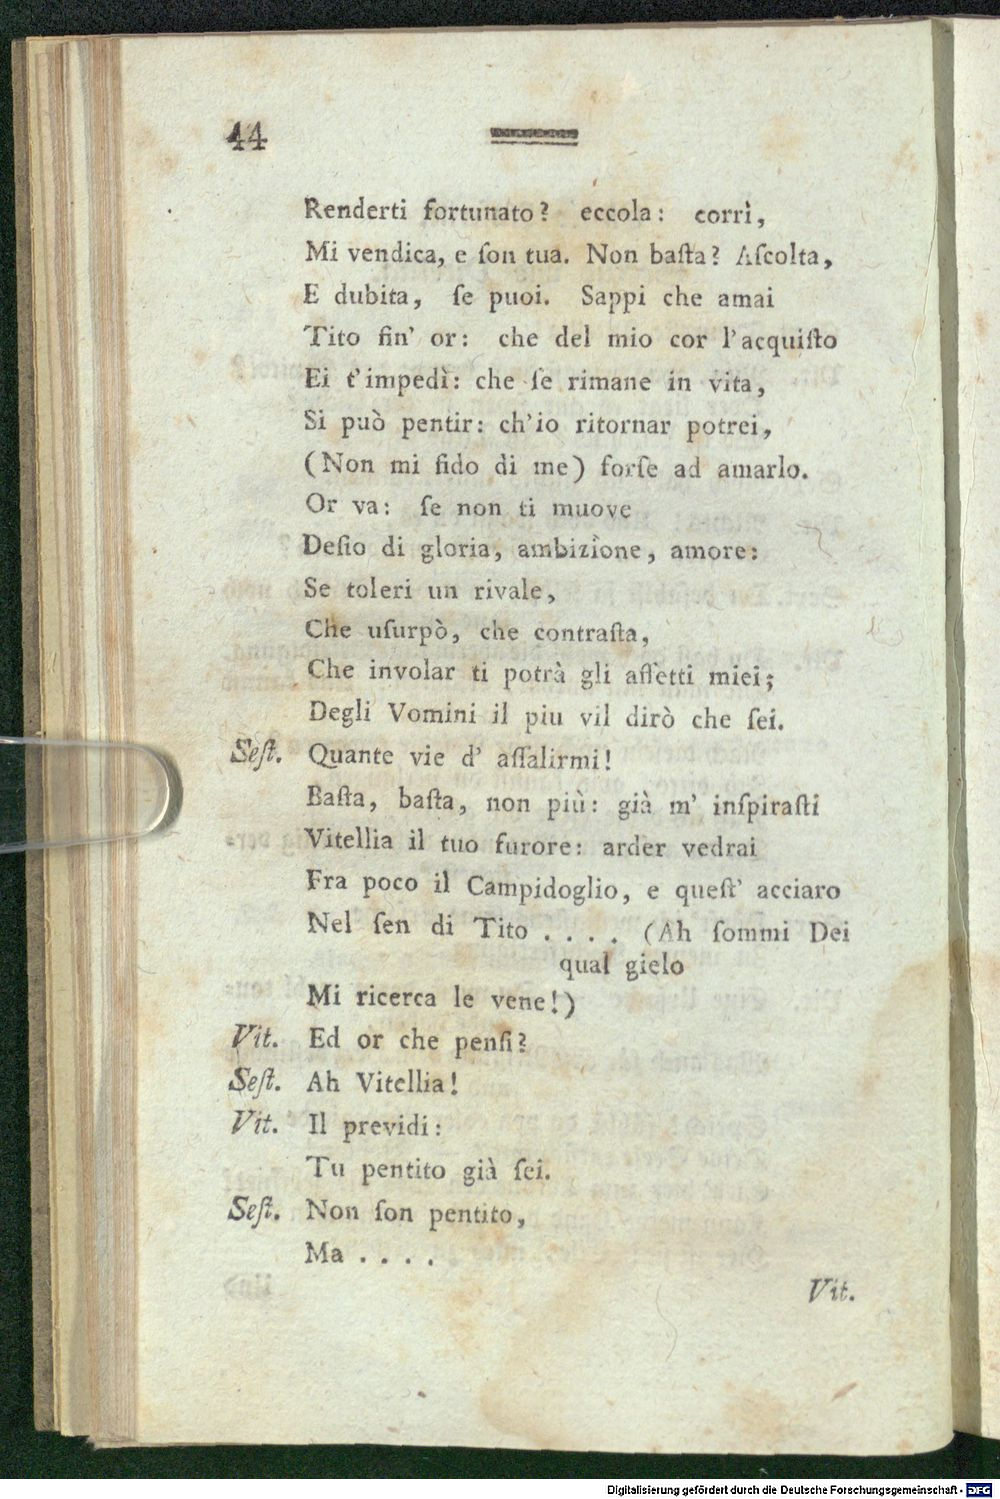 44
Renderti fortunato? eccola: corrì,
Mi vendica, e ſon tua. Non baſta? Aſcolta,
E dubita, ſe puoi. Sappi che amai
Tito fin' or: che del mio cor l'acquiſto
Ei t'impedì: che ſe rimane in vita,
Si può pentir: ch'io ritornar potrei,
(Non mi fido di me) forſe ad amarlo.
Or va: ſe non ti muove
Deſio di gloria, ambizìone, amore:
Se toleri un rivale,
Che uſurpò, che contraſta,
Che involar ti potrà gli affetti miei;
Degli Vomini il piu vil dirò che ſei.
Seſt. Quante vie d' aſſalirmi!
Baſta, baſta, non più: già m' inſpiraſti
Vitellia il tuo furore: arder vedrai
Fra poco il Campidoglio, e queſt' acciaro
Nel ſen di Tito . . . . (Ah ſommi Dei
qual gielo
Mi ricerca le vene!)
Vit. Ed or che penſi?
Seſt. Ah Vitellia!
Vit. Il previdi:
Tu pentito già ſei.
Seſt. Non ſon pentito,
Ma . . . .
Vit.
Digitalisierung gefördert durch die Deutsche Forschungsgemeinschaft - DFG